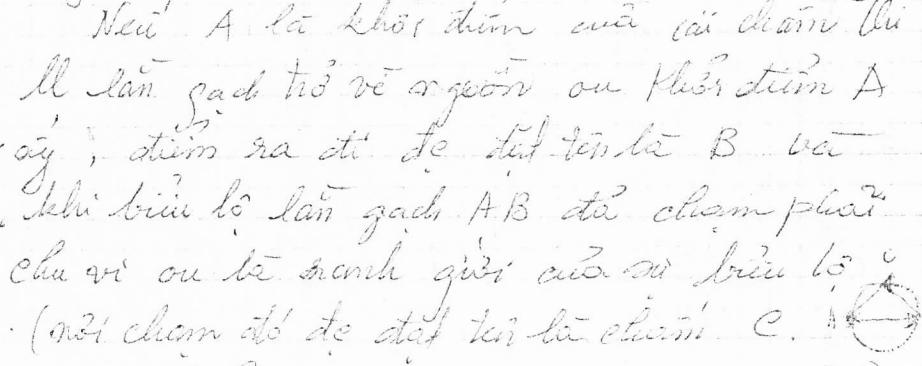 Nếu A là khởi điểm của cái chấm thì
lằn gạch trở về nguồn ou khởi điểm A
ấy, điểm ra đi đẹ đặt tên là B và
khi biểu lộ lằn gạch AB đả chạm phải
chu vi ou là ranh giới của sự biểu lộ
(nơi chạm đó đẹ đặt tên là chấm C. A